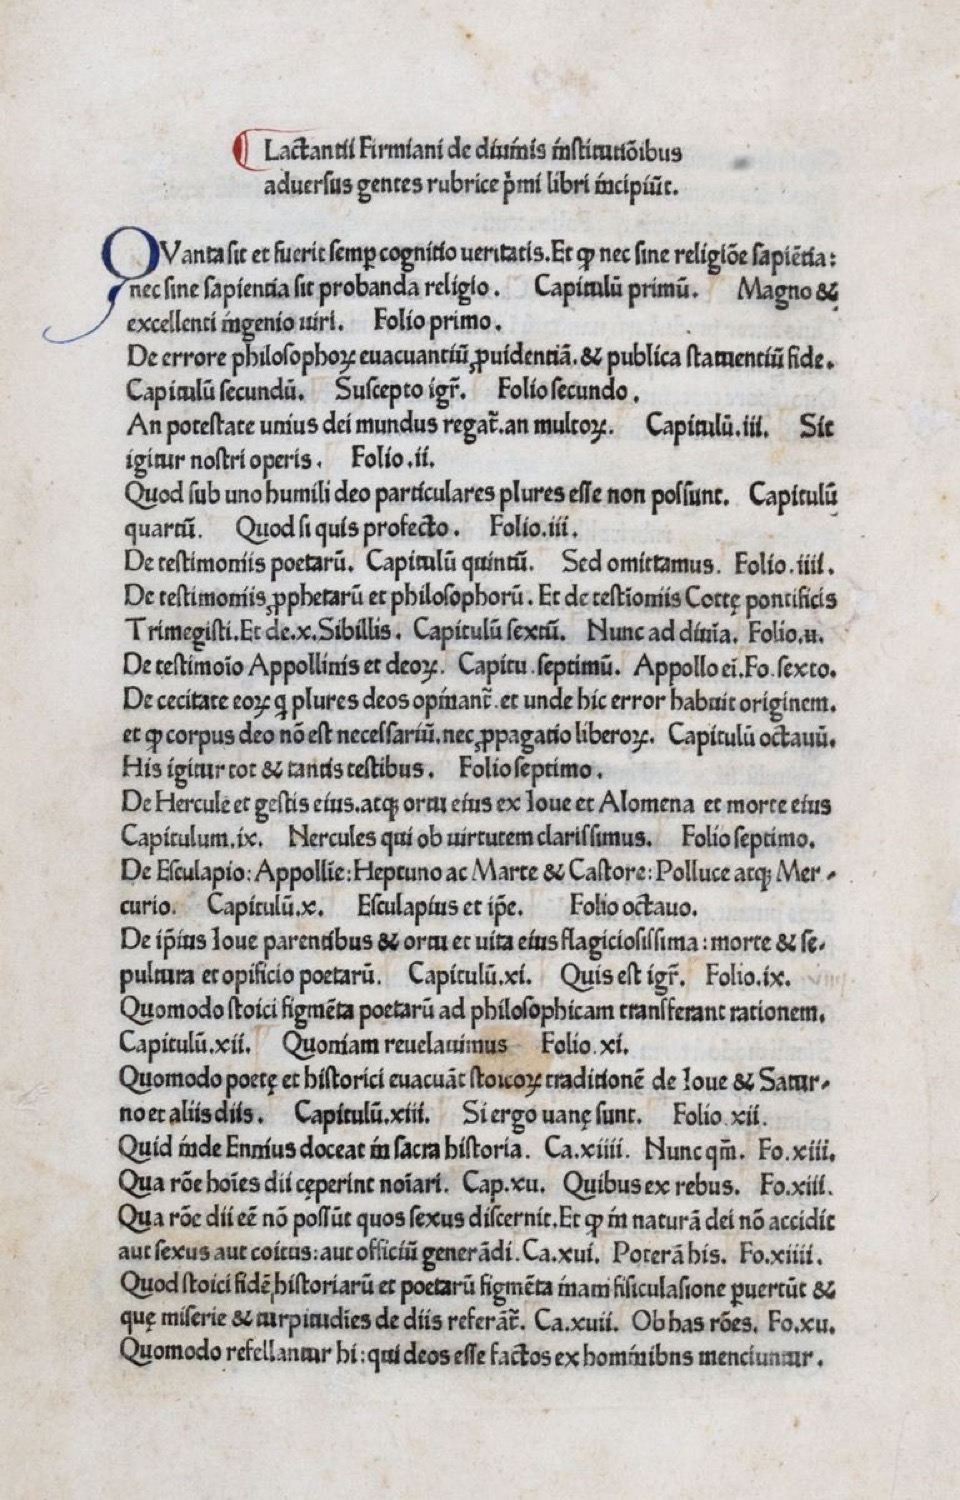 Lactantii Firmiani de diuinis institutiõibus
aduersus gentes rubrice p̃mi libri incipiũt.
QVanta sit et fuerit semꝑ cognitio ueritatis. Et ꝙ nec sine religiõe sapiẽtia:
nec sine sapientia sit probanda religio. Capitulũ primũ. Magno &
excellenti ingenio uiri. Folio primo.
De errore philosophoꝝ euacuantiũ ꝓuidentiã. & publica statuentiũ fide.
Capitulũ secundũ. Suscepto igr̃. Folio secundo.
An potestate unius dei mundus regat̃. an multoꝝ. Capitulũ. iii. Sit
igitur nostri operis. Folio .ii.
Quod sub uno humili deo particulares plures esse non possunt. Capitulũ
quartũ. Quod si quis profecto. Folio. iii.
De testimoniis poetarũ. Capitulũ quintũ. Sed omittamus. Folio. iiii.
De testimoniis ꝓphetarũ et philosophorũ. Et de testiomiis Cottę pontificis
Trimegisti. Et de .x. Sibillis. Capitulũ sextũ. Nunc ad diuĩa. Folio. u.
De testimoĩo Appollinis et deoꝝ. Capitu. septimũ. Appollo eĩ. Fo. sexto.
De cecitate eoꝝ q̃ plures deos opinant̃. et unde hic error habuit originem.
et ꝙ corpus deo nõ est necessariũ. nec ꝓpagatio liberoꝝ. Capitulũ octauũ.
His igitur tot & tantis testibus. Folio septimo.
De Hercule et gestis eius. atqꝫ ortu eius ex Ioue et Alomena et morte eius
Capitulum. ix. Hercules qui ob uirtutem clarissimus. Folio septimo.
De Esculapio: Appolliẽ: Heptuno ac Marte & Castore: Polluce atqꝫ Mer-
curio. Capitulũ. x. Esculapius et ip̃e. Folio octauo.
De ip̃ius Ioue parentibus & ortu et uita eius flagiciosissima: morte & se-
pultura et opificio poetarũ. Capitulũ. xi. Quis est igr̃. Folio. ix.
Quomodo stoici figmẽta poetarũ ad philosophicam transferant rationem.
Capitulũ. xii. Quoniam reuelauimus Folio. xi.
Quomodo poetę et historici euacuãt stoicoꝝ traditionẽ de Ioue & Satur-
no et aliis diis. Capitulũ. xiii. Si ergo uanę sunt. Folio xii.
Quid inde Ennius doceat in sacra historia. Ca. xiiii. Nunc qm̃. Fo. xiii.
Qua rõe hoĩes dii cęperint noĩari. Cap. xu. Quibus ex rebus. Fo. xiii.
Qua rõe dii eẽ nõ possũt quos sexus discernit. Et ꝙ in naturã dei nõ accidit
aut sexus aut coitus: aut officiũ generãdi. Ca. xui. Poterã his. Fo. xiiii.
Quod stoici fidẽ historiarũ et poetarũ figmẽta inani fisiculasione ꝑuertũt &
quę miserie & turpitudĩes de diis referãt̃. Ca. xuii. Ob has rões. Fo. xu.
Quomodo refellantur hi: qui deos esse factos ex hominibns menciuntur.